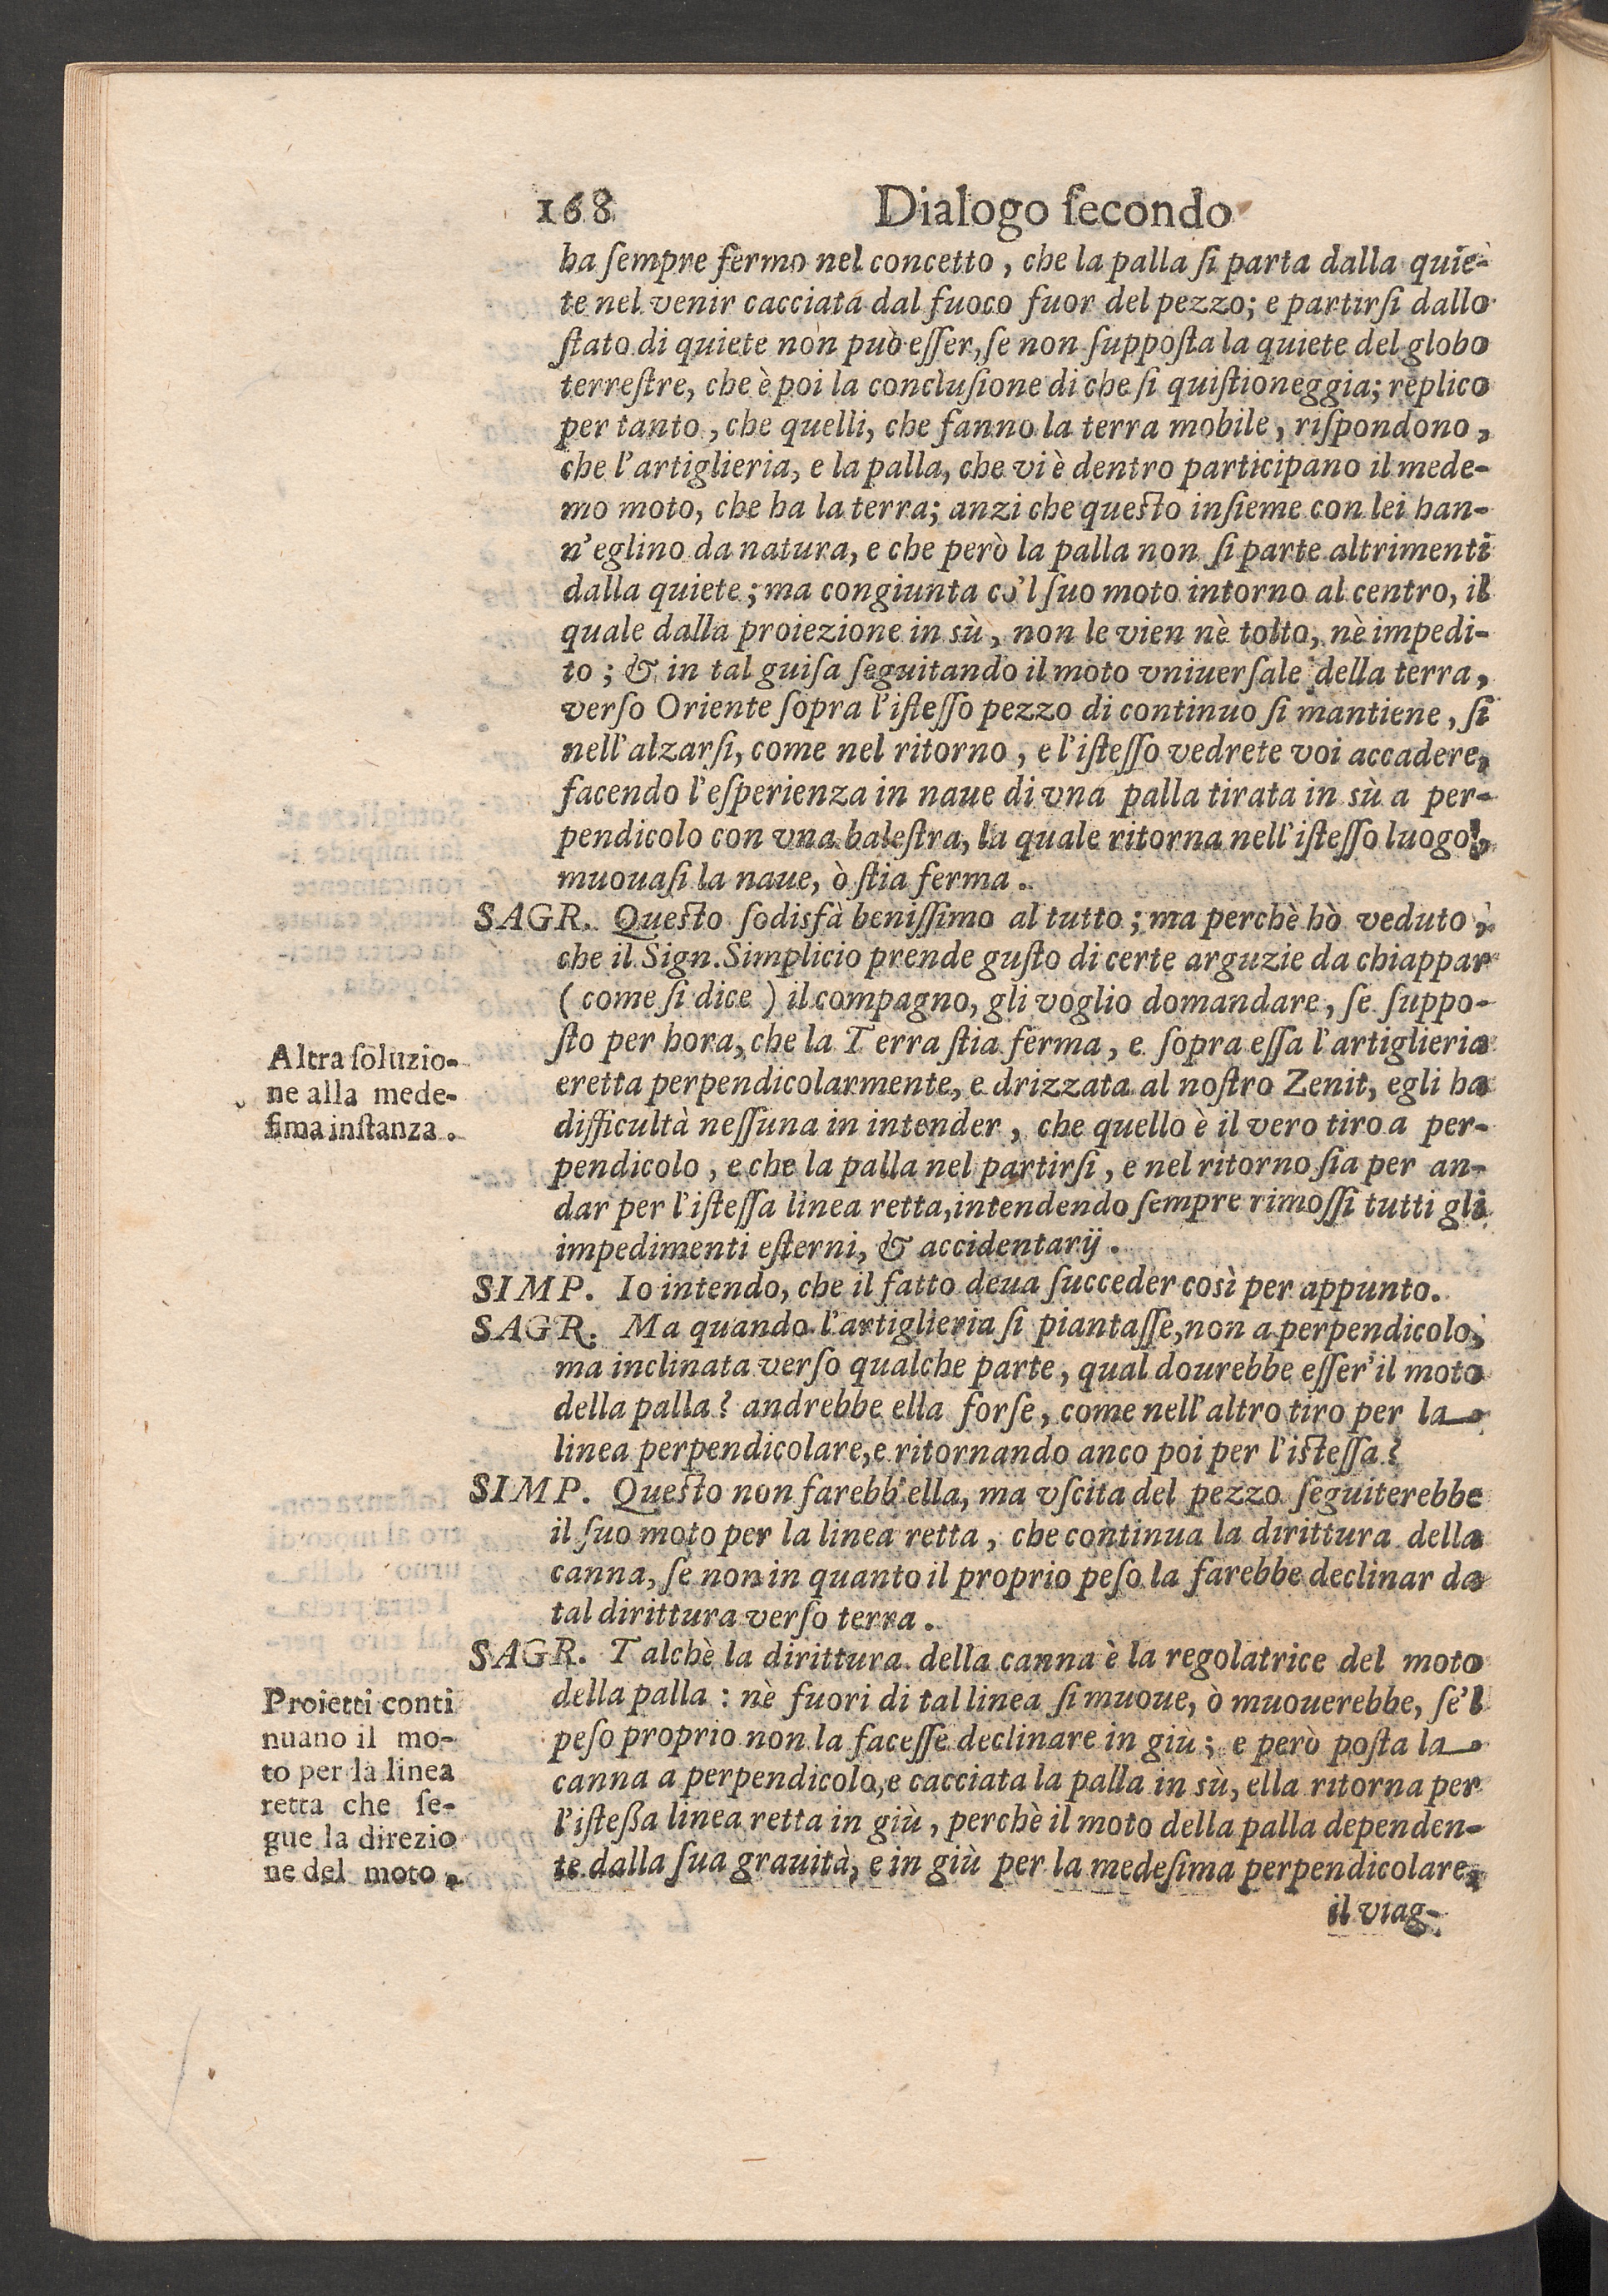 168 Dialogo ſecondo
ha ſempre fermo nel concetto, che la palla ſi parta dalla quie-
te nel venir cacciata dal fuoco fuor del pezzo; e partirſi dallo
ſtato di quiete non può eſſer, ſe non ſuppoſta la quiete del globo
terreſtre, che è poi la concluſione di che ſi quiſtioneggia; replico
per tanto, che quelli, che fanno la terra mobile, riſpondono,
che l'artiglieria, e la palla, che vi è dentro participano il mede-
mo moto, che ha la terra; anzi che queſto inſieme con lei han-
n'eglino da natura, e che però la palla non ſi parte altrimenti
dalla quiete; ma congiunta co'l ſuo moto intorno al centro, il
quale dalla proiezione in sù, non le vien nè tolto, nè impedi-
to; & in tal guiſa ſeguitando il moto vniuerſale della terra,
verſo Oriente ſopra l'iſteſſo pezzo di continuo ſi mantiene, ſi
nell'alzarſi, come nel ritorno, e l'iſteſſo vedrete voi accadere,
facendo l'eſperienza in naue di vna palla tirata in sù a per-
pendicolo con vna baleſtra, la quale ritorna nell'iſteſſo luogo,
muouaſi la naue, ò ſtia ferma.
SAGR. Queſto ſodisfà beniſſimo al tutto; ma perchè hò veduto,
che il Sign. Simplicio prende guſto di certe arguzie da chiappar
(come ſi dice) il compagno, gli voglio domandare, ſe ſuppo-
ſto per hora, che la Terra ſtia ferma, e ſopra eſſa l'artiglieria
eretta perpendicolarmente, e drizzata al noſtro Zenit, egli ha
difficultà neſſuna in intender, che quello è il vero tiro a per-
pendicolo, e che la palla nel partirſi, e nel ritorno ſia per an-
dar per l'iſteſſa linea retta, intendendo ſempre rimoſſi tutti gli
impedimenti eſterni, & accidentarij.
Altra ſoluzio-
ne alla mede-
ſima inſtanza.
SIMP. Io intendo, che il fatto deua ſucceder così per appunto.
SAGR. Ma quando l'artiglieria ſi piantaſſe, non a perpendicolo,
ma inclinata verſo qualche parte, qual dourebbe eſſer'il moto
della palla? andrebbe ella forſe, come nell'altro tiro per la
linea perpendicolare, e ritornando anco poi per l'iſteſſa?
SIMP. Queſto non farebb'ella, ma vſcita del pezzo ſeguiterebbe
il ſuo moto per la linea retta, che continua la dirittura della
canna, ſe non in quanto il proprio peſo la farebbe declinar da
tal dirittura verſo terra.
SAGR. Talchè la dirittura della canna è la regolatrice del moto
della palla: nè fuori di tal linea ſi muoue, ò muouerebbe, ſe'l
peſo proprio non la faceſſe declinare in giù; e però poſta la
canna a perpendicolo, e cacciata la palla in sù, ella ritorna per
l'iſteßa linea retta in giù, perchè il moto della palla dependen-
te dalla ſua grauità, e in giù per la medeſima perpendicolare,
Proietti conti
nuano il mo-
to per la linea
retta che ſe-
gue la direzio
ne del moto.
il viag-